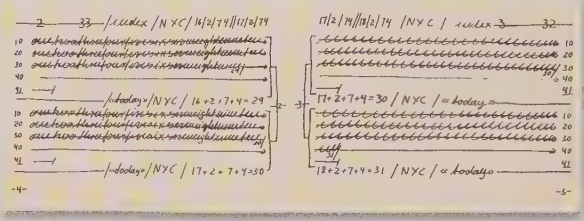 2 33 / index / NYC / 16/2/74//17/2/74
10 onetwothreefourfivesixseveneightnineten
20 onetwothreefourfivesixseveneightnineten
30 onetwothreefourfivesixseveneightnine 29/
40
41
/»today« / NYC / 16+2+7+4=29
10 onetwothreefourfivesixseveneightnineten
20 onetwothreefourfivesixseveneightnineten
30 onetwothreefourfivesixseveneightnineten
40 30/
41
/»today« / NYC / 17+2+7+4=30
-2-
-4-
17/2/74//18/2/74 / NYC / index 3 32
10
20
30
30/ 40
41
17+2+7+4=30 / NYC / »today«
10
20
30
40
31/ 41
18+2+7+4=31 / NYC / »today«
-3-
-5-